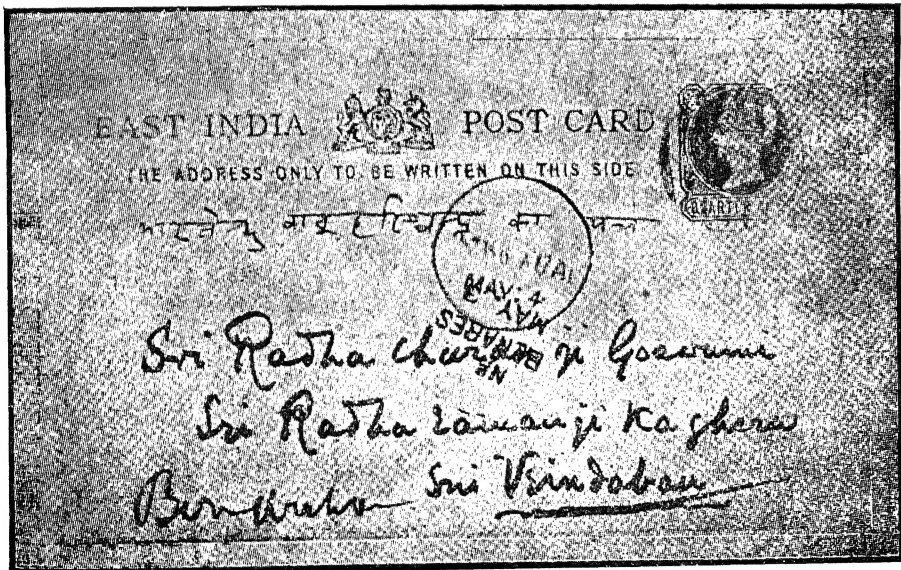 EAST INDIA POST CARD
THE ADDRESS ONLY TO BE WRITTEN ON THIS SIDE
QUARTER
भारतेन्दु बाबू हरिश्चन्द्र का पत्र
MAY. 4
MAY
BENARES
Sri Radha Charan ji Goswami
Sri Radha ramanji ka ghera
Sri Brindaban